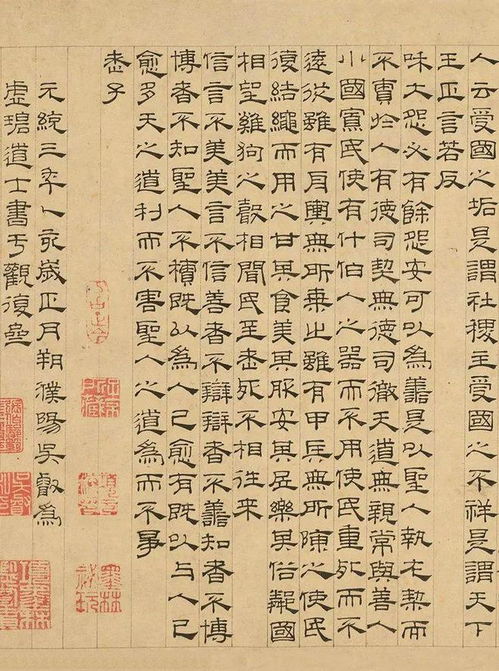 人云受國之垢是謂社稷主受國之不祥是謂天下
王正言若反
和大怨必有餘怨安可以為善是以聖人執左契而
不責於人有德司契無德司徹天道無親常與善人
小國寡民使有什伯人之器而不用使民重死而不
遠徙雖有舟輿無所乘之雖有甲兵無所陳之使民
復結繩而用之甘其食美其服安其居樂其俗鄰國
相望雞狗之聲相聞民至老死不相往來
信言不美美言不信善者不辯辯者不善知者不博
博者不知聖人不積既以為人己愈有既以与人己
愈多天之道利而不害聖人之道為而不爭
老子
元統三年乙亥歲正月朔濮陽吳叡為
虛碧道士書于觀復
墨林祕玩